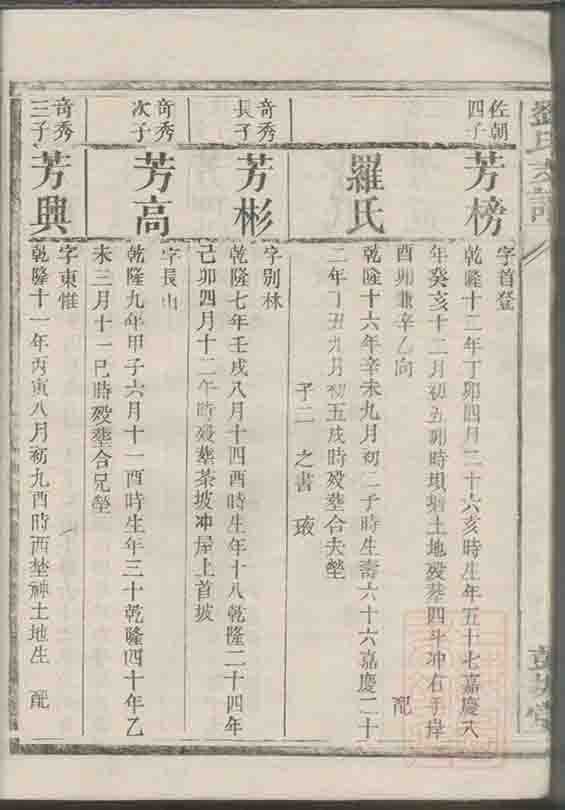 佐朝
四子
芳榜
字首登
乾隆十二年丁卯四月二十六亥時生年五十七嘉慶八
年癸亥十二月初五卯時塅 土地歿葬四斗冲右手岸
酉卯兼辛乙向 配
羅氏
乾隆十六年辛未九月初二子時生壽六十六嘉慶二十
二年丁丑九月初五戌時歿葬合夫塋
子二 之書 璈
奇秀
長子
芳彬
字別林
乾隆七年壬戌八月十四酉時生年十八乾隆二十四年
己卯四月十二午時歿葬茶坡冲屋上首坡
奇秀
次子
芳高
字長山
乾隆九年甲子六月十一酉時生年三十乾隆四十年乙
未三月十一巳時歿葬合兄塋
奇秀
三子
芳興
字東惟
乾隆十一年丙寅八月初九酉時西埜神土地生 配